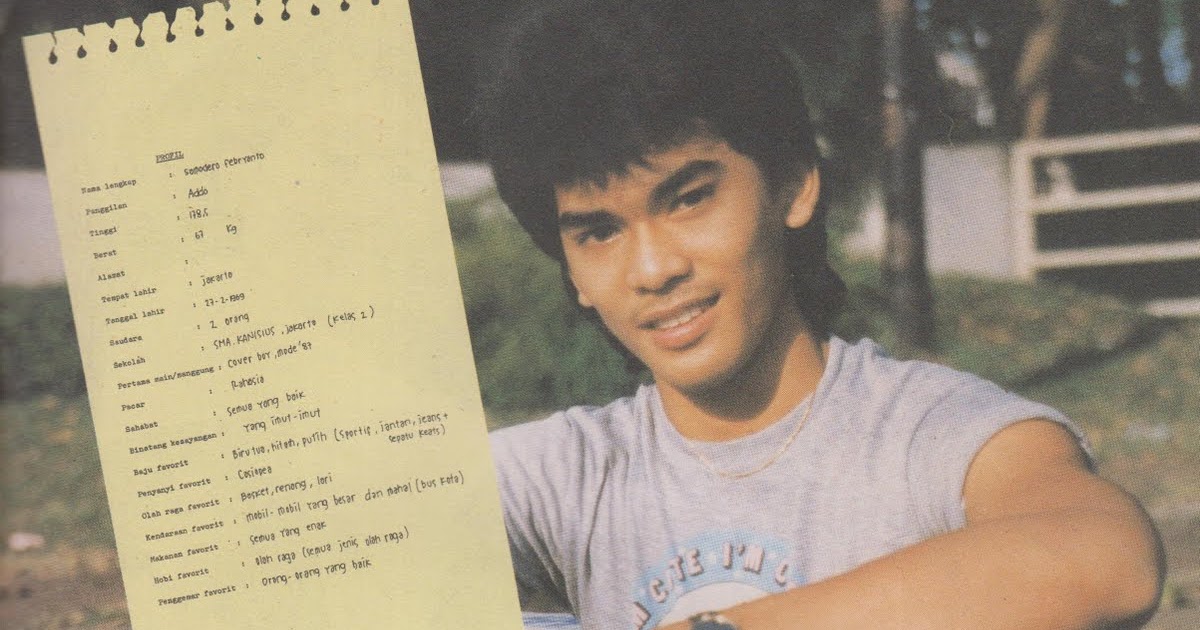 PROFIL
Nama lengkap : Somodero Febryanto
Panggilan : Addo
Tinggi : 178.5
Berat : 67 Kg
Alamat :
Tempat lahir : jakarta
Tanggal lahir : 27-2-1969
Saudara : 2 orang
Sekolah : SMA.KANISIUS, jakarta (kelas 2)
Pertama main/manggung : Cover boy, mode '87
Pacar : Rahasia
Sahabat : semua yang baik
Binatang kesayangan : yang imut-imut
Baju favorit : Biru tua, hitam, putih (sportis, jantan, jeans +
sepatu keats)
Penyanyi favorit : Casiopea
Olah raga favorit : Basket, renang, lari
Kendaraan favorit : mobil-mobil yang besar dan mahal (bus kota)
Makanan favorit : semua yang enak
Hobi favorit : olah raga (semua jenis olah raga)
Penggemar favorit : Orang-orang yang baik
I'M